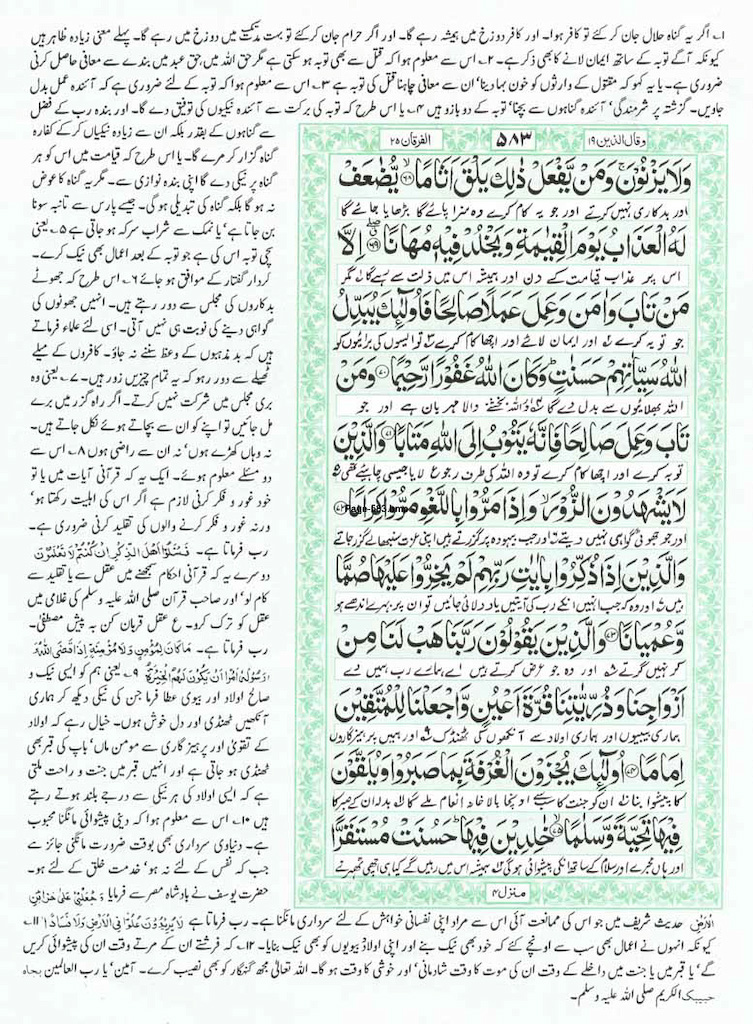 ۱ے اگر یہ گناہ حلال جان کر کئے تو کافر ہوا۔ اور کافر دوزخ میں ہمیشہ رہے گا۔ اور اگر حرام جان کر کئے تو بہت مدت میں دوزخ میں رہے گا۔ پہلے معنی زیادہ ظاہر ہیں
کیونکہ آگے توبہ کے ساتھ ایمان لانے کا بھی ذکر ہے۔ ۲ے اس سے معلوم ہوا کہ قتل سے بھی توبہ ہو سکتی ہے مگر حق اللہ میں حق عبد میں بندے سے معافی حاصل کرنی
ضروری ہے۔ یا یہ کہو کہ مقتول کے وارثوں کو خون بہا دینا' ان سے معافی چاہنا قتل کی توبہ ہے ۳ے اس سے معلوم ہوا کہ توبہ کے لئے ضروری ہے کہ آئندہ عمل بدل
جاویں۔ گزشتہ پر شرمندگی' آئندہ گناہوں سے بچنا' توبہ کے دو بازو ہیں ۴ے یا اس طرح کہ توبہ کی برکت سے آئندہ نیکیوں کی توفیق دے گا۔ اور بندہ رب کے فضل
سے گناہوں کے بقدر بلکہ ان سے زیادہ نیکیاں کر کے کفارہ
گناہ گزار کر مرے گا۔ یا اس طرح کہ قیامت میں اس کو ہر
گناہ پر نیکی دے گا اپنی بندہ نوازی سے۔ مگر یہ گناہ کا عوض
نہ ہو گا بلکہ گناہ کی تبدیلی ہوگی۔ جیسے پارس سے تانبہ سونا
بن جاتا ہے' یا نمک سے شراب سرکہ ہو جاتی ہے ۵ے یعنی
سچی توبہ اس کی ہے جو توبہ کے بعد اعمال بھی نیک کرے۔
کردار گفتار کے موافق ہو جائے ۶ے اس طرح کہ جھوٹے
بدکاروں کی مجلس سے دور رہتے ہیں۔ انہیں جھوٹوں کی
گواہی دینے کی نوبت ہی نہیں آتی۔ اسی لئے علماء فرماتے
ہیں کہ بد مذہبوں کے وعظ سننے نہ جاؤ۔ کافروں کے میلے
ٹھیلے سے دور رہو کہ یہ تمام چیزیں زور ہیں۔ ۷ے یعنی وہ
بری مجلس میں شرکت نہیں کرتے۔ اگر راہ گزر میں برے
مل جائیں تو اپنے کو ان سے بچاتے ہوئے نکل جاتے ہیں۔
نہ وہاں کھڑے ہوں' نہ ان سے راضی ہوں ۸ے اس سے
دو مسئلے معلوم ہوئے۔ ایک یہ کہ قرآنی آیات میں یا تو
خود غور و فکر کرنی لازم ہے اگر اس کی اہلیت رکھتا ہو'
ورنہ غور و فکر کرنے والوں کی تقلید کرنی ضروری ہے۔
رب فرماتا ہے۔ فَسْئَلُوْا اَهْلَ الذِّكْرِ اِنْ كُنْتُمْ لَا تَعْلَمُوْنَ
دوسرے یہ کہ قرآنی احکام سمجھنے میں عقل سے یا تقلید سے
کام لو' اور صاحب قرآن صلی اللہ علیہ وسلم کی غلامی میں
عقل کو ترک کرو۔ ع عقل قربان کن بہ پیش مصطفیٰ۔
رب فرماتا ہے۔ مَا كَانَ لِمُؤْمِنٍ وَّلَا مُؤْمِنَةٍ اِذَا قَضَى اللّٰهُ
وَرَسُوْلُهٗ اَمْرًا اَنْ يَّكُوْنَ لَهُمُ الْخِيَرَةُ ۹ے یعنی ہم کو ایسی نیک و
صالح اولاد اور بیوی عطا فرما جن کی نیکی دیکھ کر ہماری
آنکھیں ٹھنڈی اور دل خوش ہوں۔ خیال رہے کہ اولاد
کے تقویٰ اور پرہیز گاری سے مومن ماں' باپ کی قبر بھی
ٹھنڈی ہو جاتی ہے اور انہیں قبر میں جنت و راحت ملتی
ہے کہ ایسی اولاد کی ہر نیکی سے درجے بلند ہوتے رہتے
ہیں ۱۰ے اس سے معلوم ہوا کہ دینی پیشوائی مانگنا محبوب
ہے۔ دنیاوی سرداری بھی بوقت ضرورت مانگنی جائز ہے
جب کہ نفس کے لئے نہ ہو' خدمت خلق کے لئے ہو۔
حضرت یوسف نے بادشاہ مصر سے فرمایا وَ جَعَلْنِيْ عَلٰى خَزَآئِنِ
وقال الذین ۱۹
۵۸۳
الفرقان ۲۵
وَلَا يَزْنُوْنَ ۚ وَمَنْ يَّفْعَلْ ذٰلِكَ يَلْقَ اَثَامًا ﴿۶۸﴾ يُّضٰعَفْ
اور بدکاری نہیں کرتے اور جو یہ کام کرے وہ سزا پائے گا بڑھایا جائے گا
لَهُ الْعَذَابُ يَوْمَ الْقِيٰمَةِ وَيَخْلُدْ فِيْهٖ مُهَانًا ﴿۶۹﴾ اِلَّا
اس پر عذاب قیامت کے دن اور ہمیشہ اس میں ذلت سے رہے گا مگر
مَنْ تَابَ وَاٰمَنَ وَعَمِلَ عَمَلًا صَالِحًا فَاُولٰٓئِكَ يُبَدِّلُ
جو توبہ کرے اور ایمان لائے اور اچھا کام کرے تو ایسوں کی برائیوں کو
اللّٰهُ سَيِّاٰتِهِمْ حَسَنٰتٍ ؕ وَكَانَ اللّٰهُ غَفُوْرًا رَّحِيْمًا ﴿۷۰﴾ وَمَنْ
اللہ بھلائیوں سے بدل دے گا اور اللہ بخشنے والا مہربان ہے اور جو
تَابَ وَعَمِلَ صَالِحًا فَاِنَّهٗ يَتُوْبُ اِلَى اللّٰهِ مَتَابًا ﴿۷۱﴾ وَالَّذِيْنَ
توبہ کرے اور اچھا کام کرے تو وہ اللہ کی طرف رجوع لایا جیسی چاہیئے تھی
لَا يَشْهَدُوْنَ الزُّوْرَ ۙ وَاِذَا مَرُّوْا بِاللَّغْوِ مَرُّوْا كِرَامًا ﴿۷۲﴾
اور جو جھوٹی گواہی نہیں دیتے اور جب بیہودہ پر گزرتے ہیں اپنی عزت سنبھالے گزر جاتے
وَالَّذِيْنَ اِذَا ذُكِّرُوْا بِاٰيٰتِ رَبِّهِمْ لَمْ يَخِرُّوْا عَلَيْهَا صُمًّا
ہیں اور وہ کہ جب انہیں انکے رب کی آیتیں یاد دلائی جائیں تو ان پر بہرے اندھے ہو
وَّعُمْيَانًا ﴿۷۳﴾ وَالَّذِيْنَ يَقُوْلُوْنَ رَبَّنَا هَبْ لَنَا مِنْ
کر نہیں گرتے اور وہ جو عرض کرتے ہیں اے ہمارے رب ہمیں دے
اَزْوَاجِنَا وَذُرِّيّٰتِنَا قُرَّةَ اَعْيُنٍ وَّاجْعَلْنَا لِلْمُتَّقِيْنَ
ہماری بیبیوں اور ہماری اولاد سے آنکھوں کی ٹھنڈک اور ہمیں پرہیزگاروں
اِمَامًا ﴿۷۴﴾ اُولٰٓئِكَ يُجْزَوْنَ الْغُرْفَةَ بِمَا صَبَرُوْا وَيُلَقَّوْنَ
کا پیشوا بنا ان کو جنت کا سب سے اونچا بالا خانہ انعام ملے گا بدلہ ان کے صبر کا
فِيْهَا تَحِيَّةً وَّسَلٰمًا ﴿۷۵﴾ خٰلِدِيْنَ فِيْهَا ؕ حَسُنَتْ مُسْتَقَرًّا
اور وہاں مجرے اور سلام کے ساتھ انکی پیشوائی ہوگی ہمیشہ اس میں رہیں گے کیا ہی اچھی ٹھہرنے
منزل ۴
Page-583.bmp
الْاَرْضِ حدیث شریف میں جو اس کی ممانعت آئی اس سے مراد اپنی نفسانی خواہش کے لئے سرداری مانگنا ہے۔ رب فرماتا ہے لَا يُرِيْدُوْنَ عُلُوًّا فِى الْاَرْضِ وَلَا فَسَادًا ۱۱ے
کیونکہ انہوں نے اعمال بھی سب سے اونچے کئے کہ خود بھی نیک بنے اور اپنی اولاد بیویوں کو بھی نیک بنایا۔ ۱۲ے کہ فرشتے ان کے مرتے وقت ان کی پیشوائی کریں
گے' یا قبر میں یا جنت میں داخلے کے وقت ان کی موت کا وقت شادمانی' اور خوشی کا وقت ہو گا۔ اللہ تعالیٰ مجھ گنہگار کو بھی نصیب کرے۔ آمین' یا رب العالمین بجاہ
حبیبک الکریم صلی اللہ علیہ وسلم۔